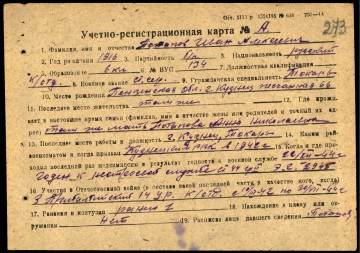 273
Учетно-регистрационная карта № А.
1. Фамилия, имя и отчество Потапов Иван Алексеев.
2. Год рождения 1916 3. Партийность б/п 4. Национальность русский
5. Образование 6 кл 6. № ВУС 134 7. Должностная квалификация
к/отд. 8. Военное звание Ст. сер. 9. Гражданская специальность Токарь
10. Место рождения Пензенская обл. г. Кузнецк
11. Последнее место жительства там же 12. Где прожи-
вает в настоящее время семья (фамилия, имя и отчество жены или родителей и точный их ад-
рес) там же мать Потапова Анна Николаевна
13. Последнее место работы и должность г. Кузнецк, Токарь 14. Каким рай-
военкоматом и когда призван Кузнецкий РВК в 1942 г. 15. Когда и где про-
ходил последний раз медкомиссию и результат годности к военной службе
Годен к
16. Участие в Отечественной войне (в составе какой последней части, в качестве кого, когда)
3 Прибалтийский
17. Ранения и контузии ранен 1 18. Нахождение в плену или ок-
ружении нет 19. Расписка лица, давшего сведения